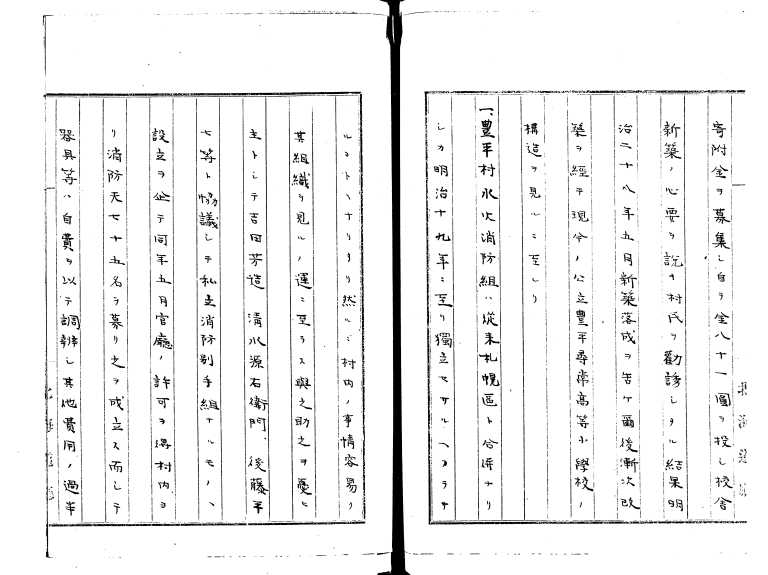 寄附金ヲ募集シ自ラ金八十一圓ヲ投シ校舎
新築ノ心要ヲ説キ村民ヲ勸誘シタル結果明
治二十八年五月新築落成ヲ告ケ爾後漸次改
築ヲ經テ現今ノ公立豊平尋常高等小學校ノ
構造ヲ見ルニ至レリ
一、豊平村水火消防組ハ従来札幌區ト合併ナリ
シカ明治十九年ニ至リ獨立セサルヘカラサ
ルコトヽナリタリ然ルニ村内ノ事情容易ク
其組織ヲ見ルノ運ニ至ラス與之助之ヲ憂ヒ
主トシテ吉田芳造 清水源右衛門、後藤平
七等ト協議シテ私立消防別手組ナルモノヽ
設立ヲ企テ同年五月官廳ノ許可ヲ得村内ヨ
リ消防夫七十五名ヲ募リ之ヲ成立ス而シテ
器具等ハ自費ヲ以テ調辨シ其他費用ノ過半